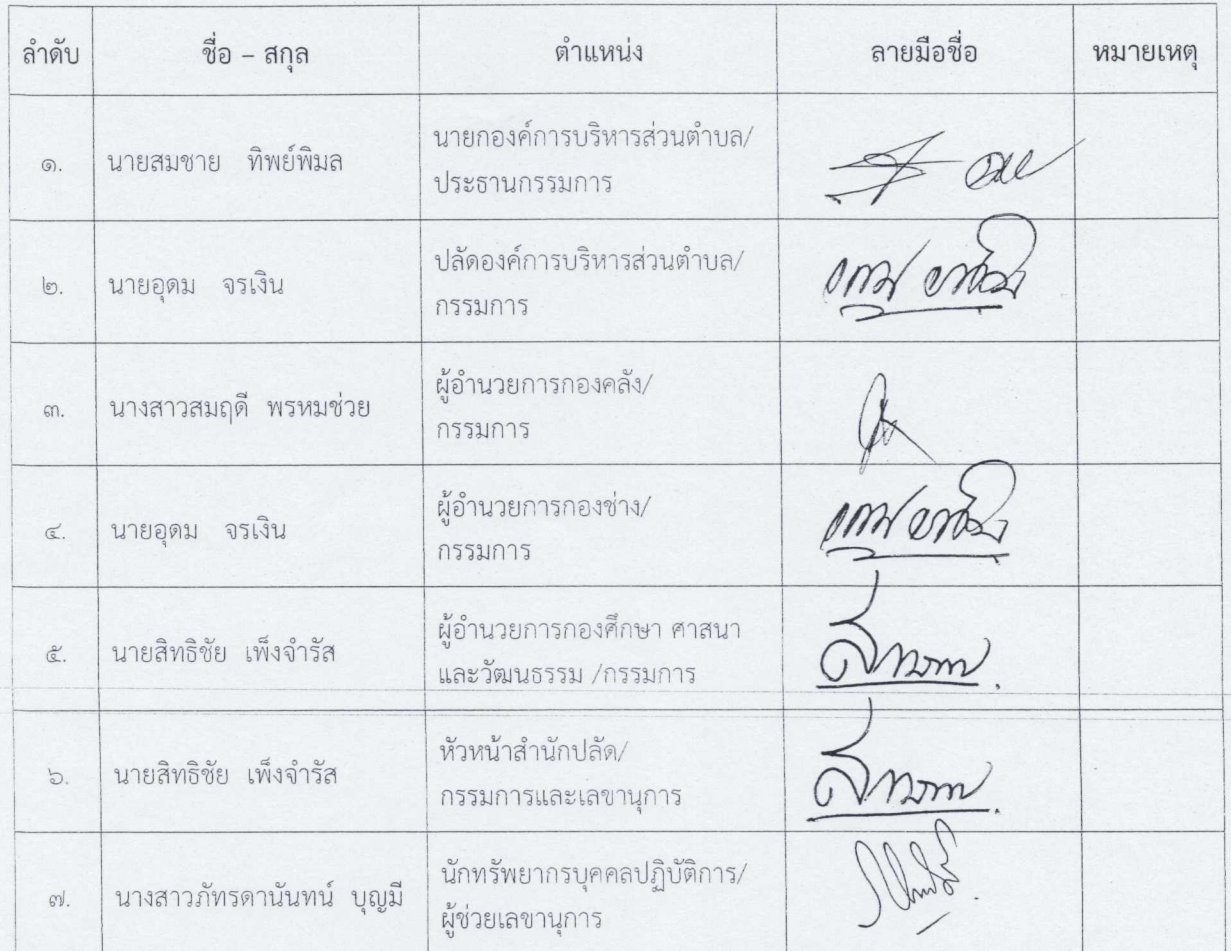 ลำดับ ชื่อ – สกุล ตำแหน่ง ลายมือชื่อ หมายเหตุ
๑. นายสมชาย ทิพย์พิมล นายกองค์การบริหารส่วนตำบล/
ประธานกรรมการ
๒. นายอุดม จรเงิน ปลัดองค์การบริหารส่วนตำบล/
กรรมการ
๓. นางสาวสมฤดี พรหมช่วย ผู้อำนวยการกองคลัง/
กรรมการ
๔. นายอุดม จรเงิน ผู้อำนวยการกองช่าง/
กรรมการ
๕. นายสิทธิชัย เพ็งจำรัส ผู้อำนวยการกองศึกษา ศาสนา
และวัฒนธรรม /กรรมการ
๖. นายสิทธิชัย เพ็งจำรัส หัวหน้าสำนักปลัด/
กรรมการและเลขานุการ
๗. นางสาวภัทรดานันทน์ บุญมี นักทรัพยากรบุคคลปฏิบัติการ/
ผู้ช่วยเลขานุการ